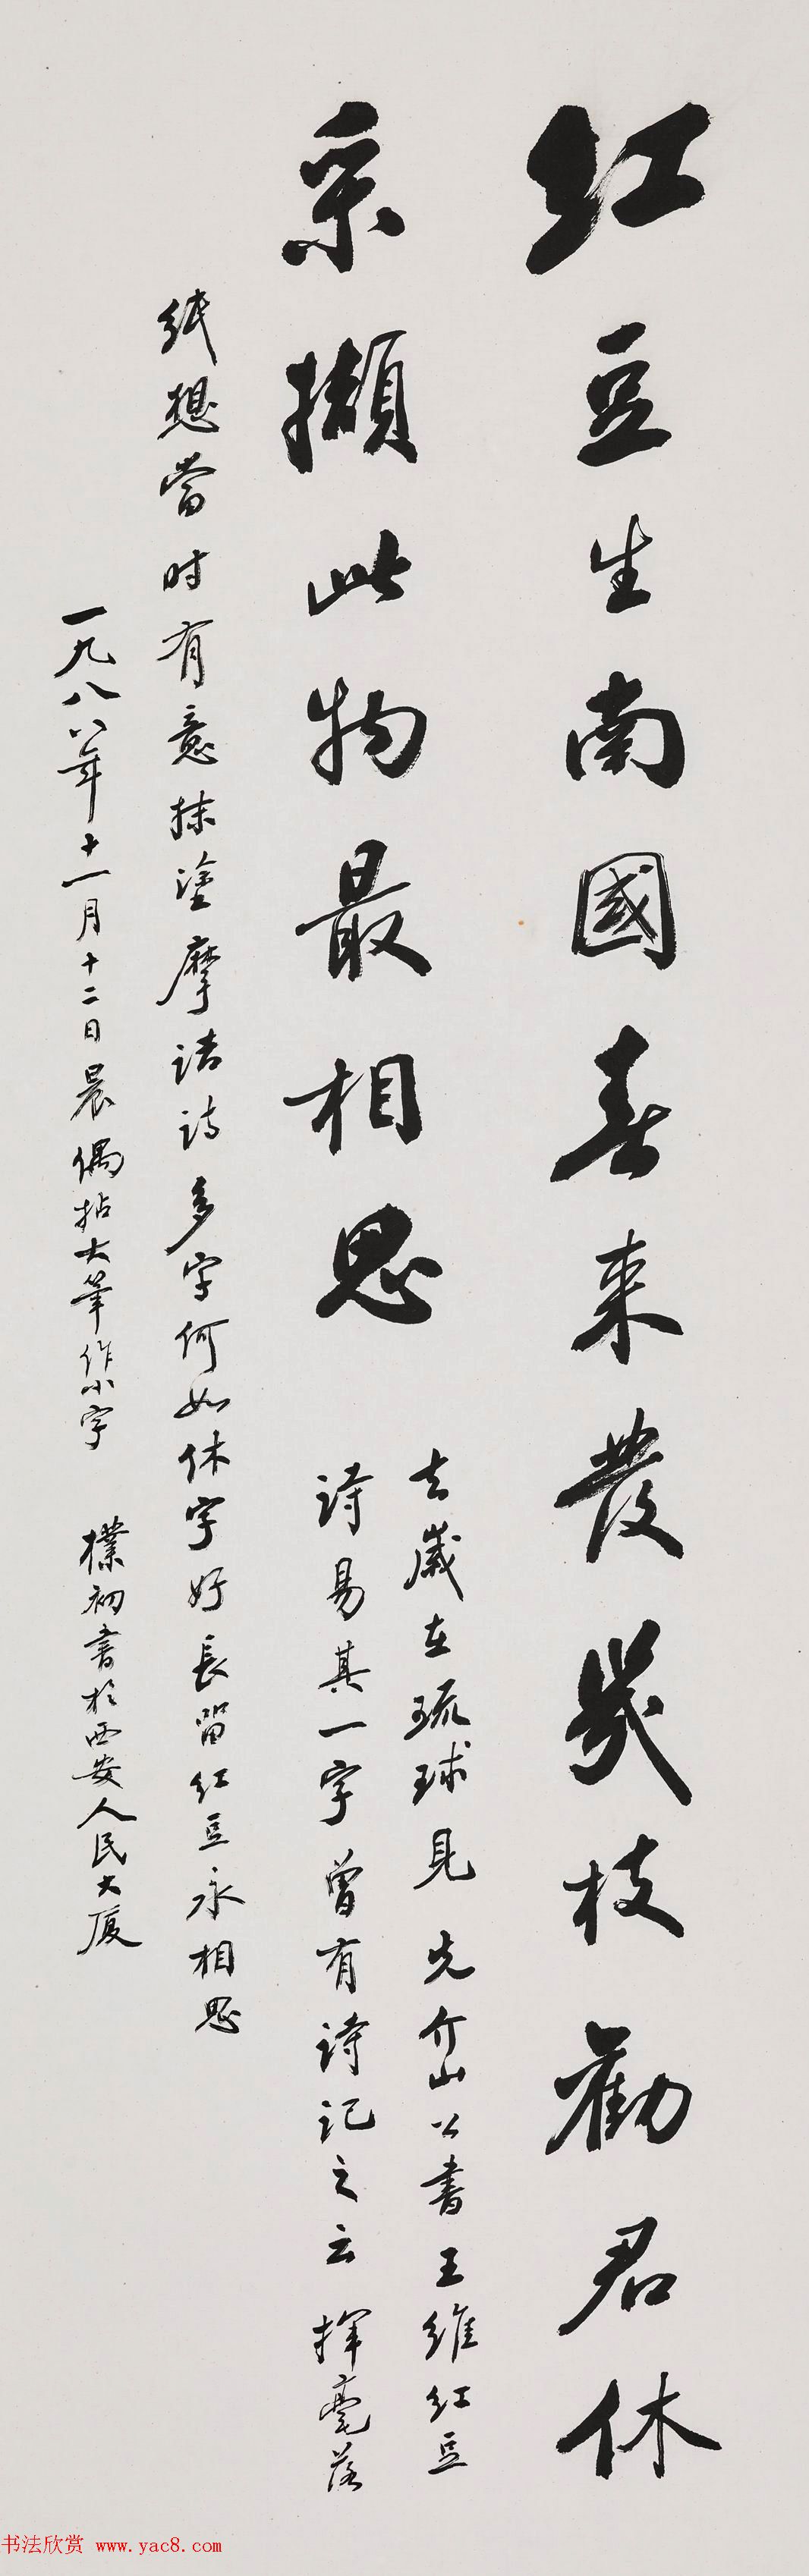 紅豆生南國春來發幾枝勸君休
采擷此物最相思
去歲在琉球見 先介山公書王維紅豆
詩易其一字曾有詩記之云 揮毫落
紙想當时有意抹塗摩诘诗多字何如休字好長留紅豆永相思
一九八八年十一月十二日晨偶拈大筆作小字 樸初書於西安人民大厦
书法欣赏 www.yac8.com